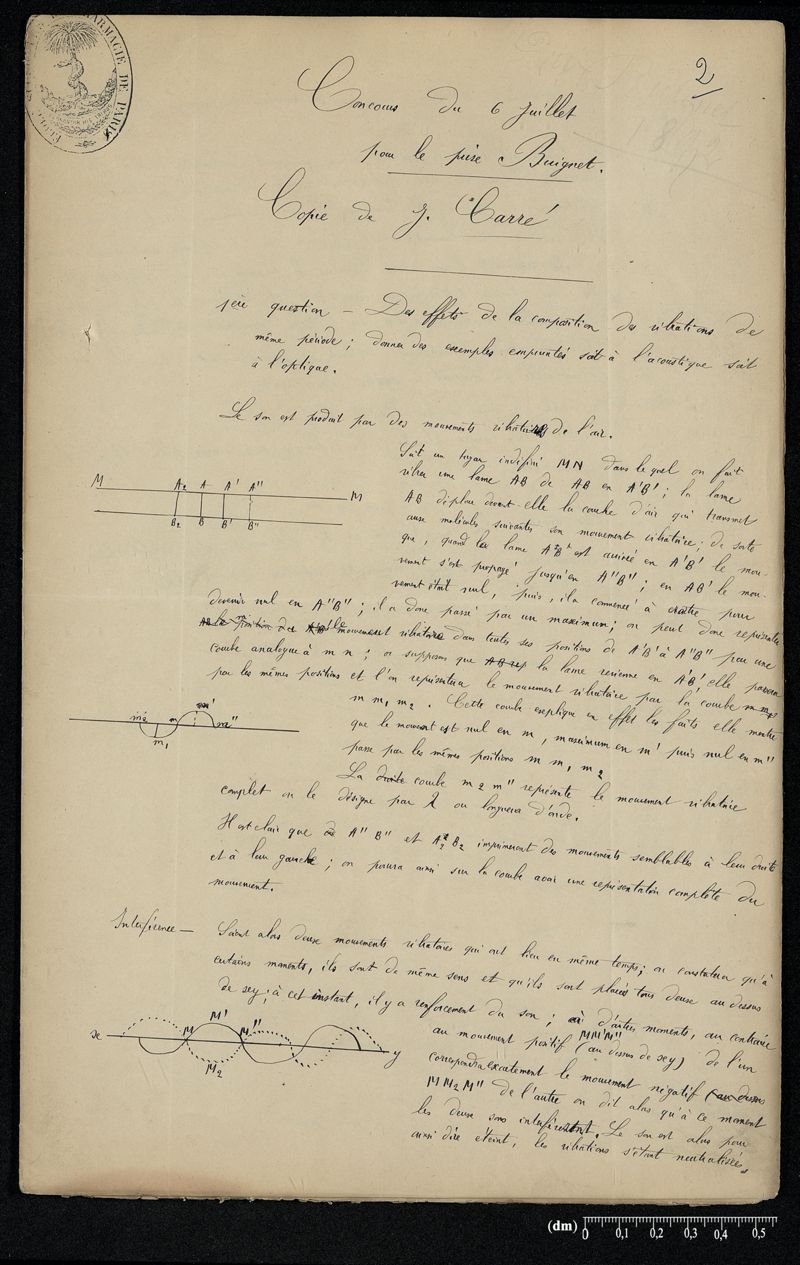 2
PHARMACIE DE PARIS
Concours du 6 Juillet
pour le prix Buignet.
Copie de J. Carré
1ère question — Des effets de la composition des vibrations de
même période ; donner des exemples empruntés soit à l'acoustique soit
à l'optique.
Le son est produit par des mouvements vibratoires de l'air.
Soit un tuyau indéfini MN dans lequel on fait
vibrer une lame AB de AB en A'B' ; la lame
AB déplace devant elle la couche d'air qui transmet
aux molécules suivantes son mouvement vibratoire ; de sorte
que, quand la lame est arrivée en A'B' le mou-
vement s'est propagé jusqu'en A"B" ; en AB le mou-
vement était nul, puis, il a commencé à croître pour
devenir nul en A"B" ; il a donc passé par un maximum ; on peut donc représenter
le mouvement vibratoire dans toutes ses positions de A'B' à A"B" par une
courbe analogue à m n ; or supposons que la lame revienne en A'B' elle passera
par les mêmes positions et l'on représentera le mouvement vibratoire par la courbe
m m1 m2. Cette courbe explique en effet les faits elle montre
que le mouvement est nul en m, maximum en m' puis nul en m"
passe par les mêmes positions m m1 m2
La courbe m2 m" représente le mouvement vibratoire
complet on le désigne par λ ou longueur d'onde.
M A2 A A' A" M
B2 B B' B"
m2 m m' m"
m1
Il est clair que A"B" et A2B2 imprimeront des mouvements semblables à leur droite
et à leur gauche ; on pourra ainsi sur la courbe avoir une représentation complète du
mouvement.
Interférence — Soient alors deux mouvements vibratoires qui ont lieu en même temps ; on constatera qu'à
certains moments, ils sont de même sens et qu'ils sont placés tous deux au dessus
de xy ; à cet instant, il y a renforcement du son ; à d'autres moments, au contraire
au mouvement positif MM'M" (au dessus de xy) de l'un
correspondra exactement le mouvement négatif (au dessous
MM2M" de l'autre on dit alors qu'à ce moment
les deux sons interfèrent. Le son est alors pour
ainsi dire éteint, les vibrations s'étant neutralisées.
x M M' M" y
M2
(dm) 0 0,1 0,2 0,3 0,4 0,5